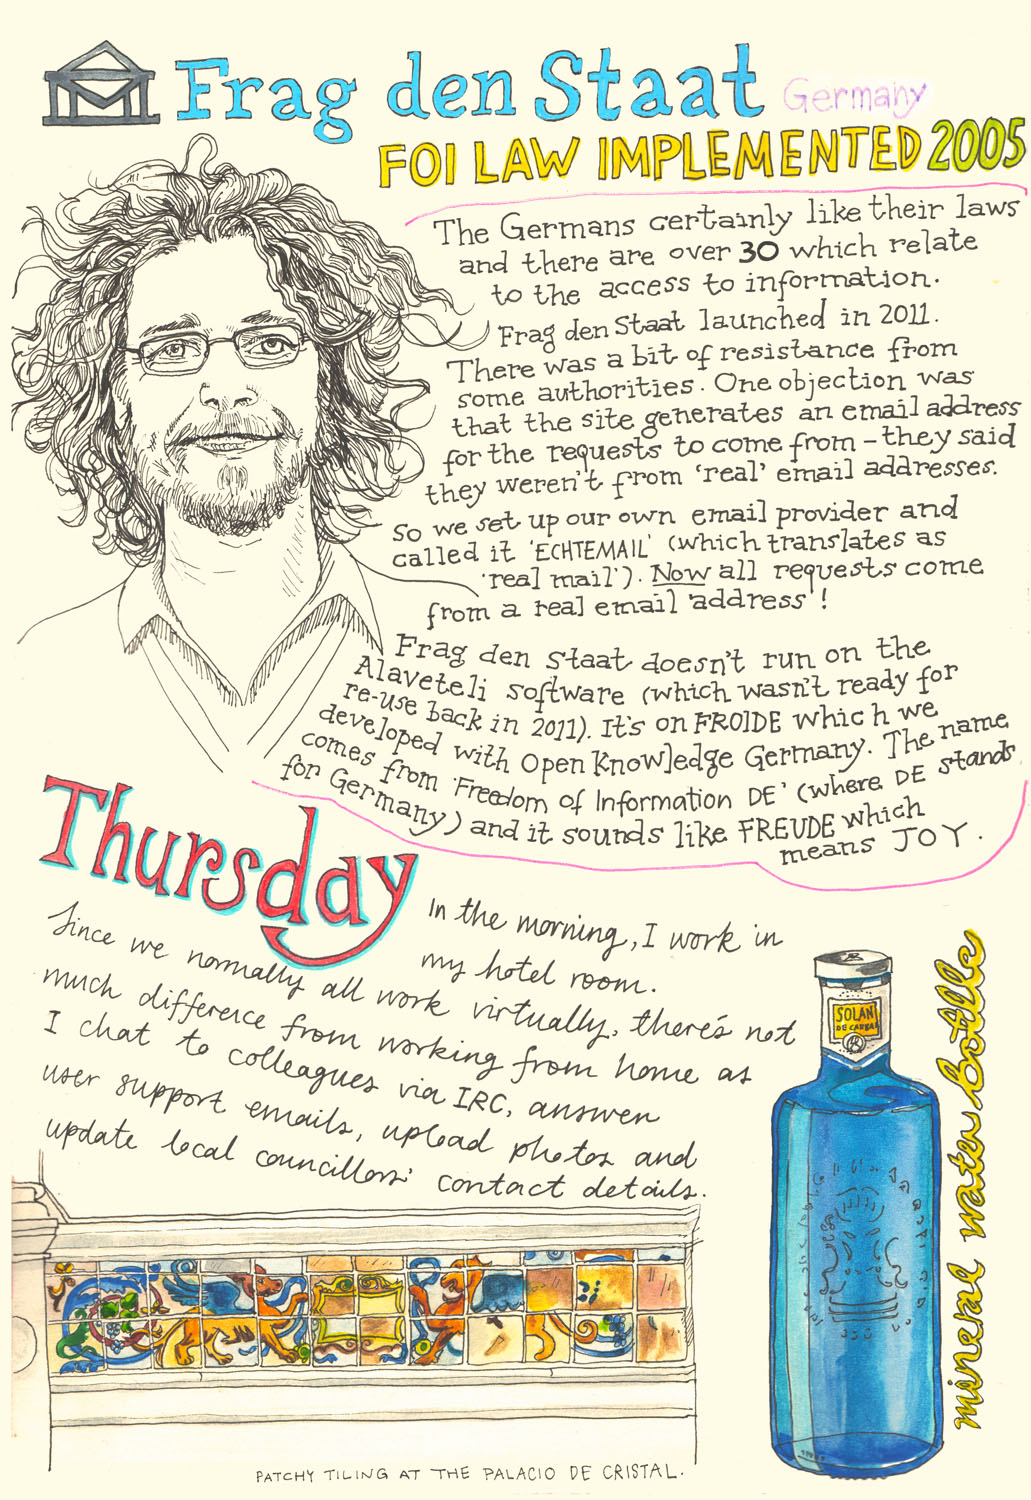 Frag den Staat Germany
FOI LAW IMPLEMENTED 2005
The Germans certainly like their laws
and there are over 30 which relate
to the access to information.
Frag den Staat launched in 2011.
There was a bit of resistance from
some authorities. One objection was
that the site generates an email address
for the requests to come from – they said
they weren't from 'real' email addresses.
So we set up our own email provider and
called it 'ECHTEMAIL' (which translates as
'real mail'). Now all requests come
from a real email address!
Frag den Staat doesn't run on the
Alaveteli software (which wasn't ready for
re-use back in 2011). It's on FROIDE which we
developed with Open Knowledge Germany. The name
comes from 'Freedom of Information DE' (where DE stands
for Germany) and it sounds like FREUDE which
means JOY.
Thursday
In the morning, I work in
my hotel room.
Since we normally all work virtually, there's not
much difference from working from home as
I chat to colleagues via IRC, answer
user support emails, upload photos and
update local councillors' contact details.
SOLAN
DE CABRAS
mineral water bottle
PATCHY TILING AT THE PALACIO DE CRISTAL.